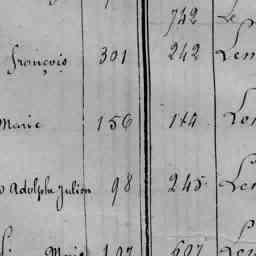 742 Le
François 301 242 Lem
Marie 156 144
Adolphe Julien 98 245 Le
Marie 107 607 Le